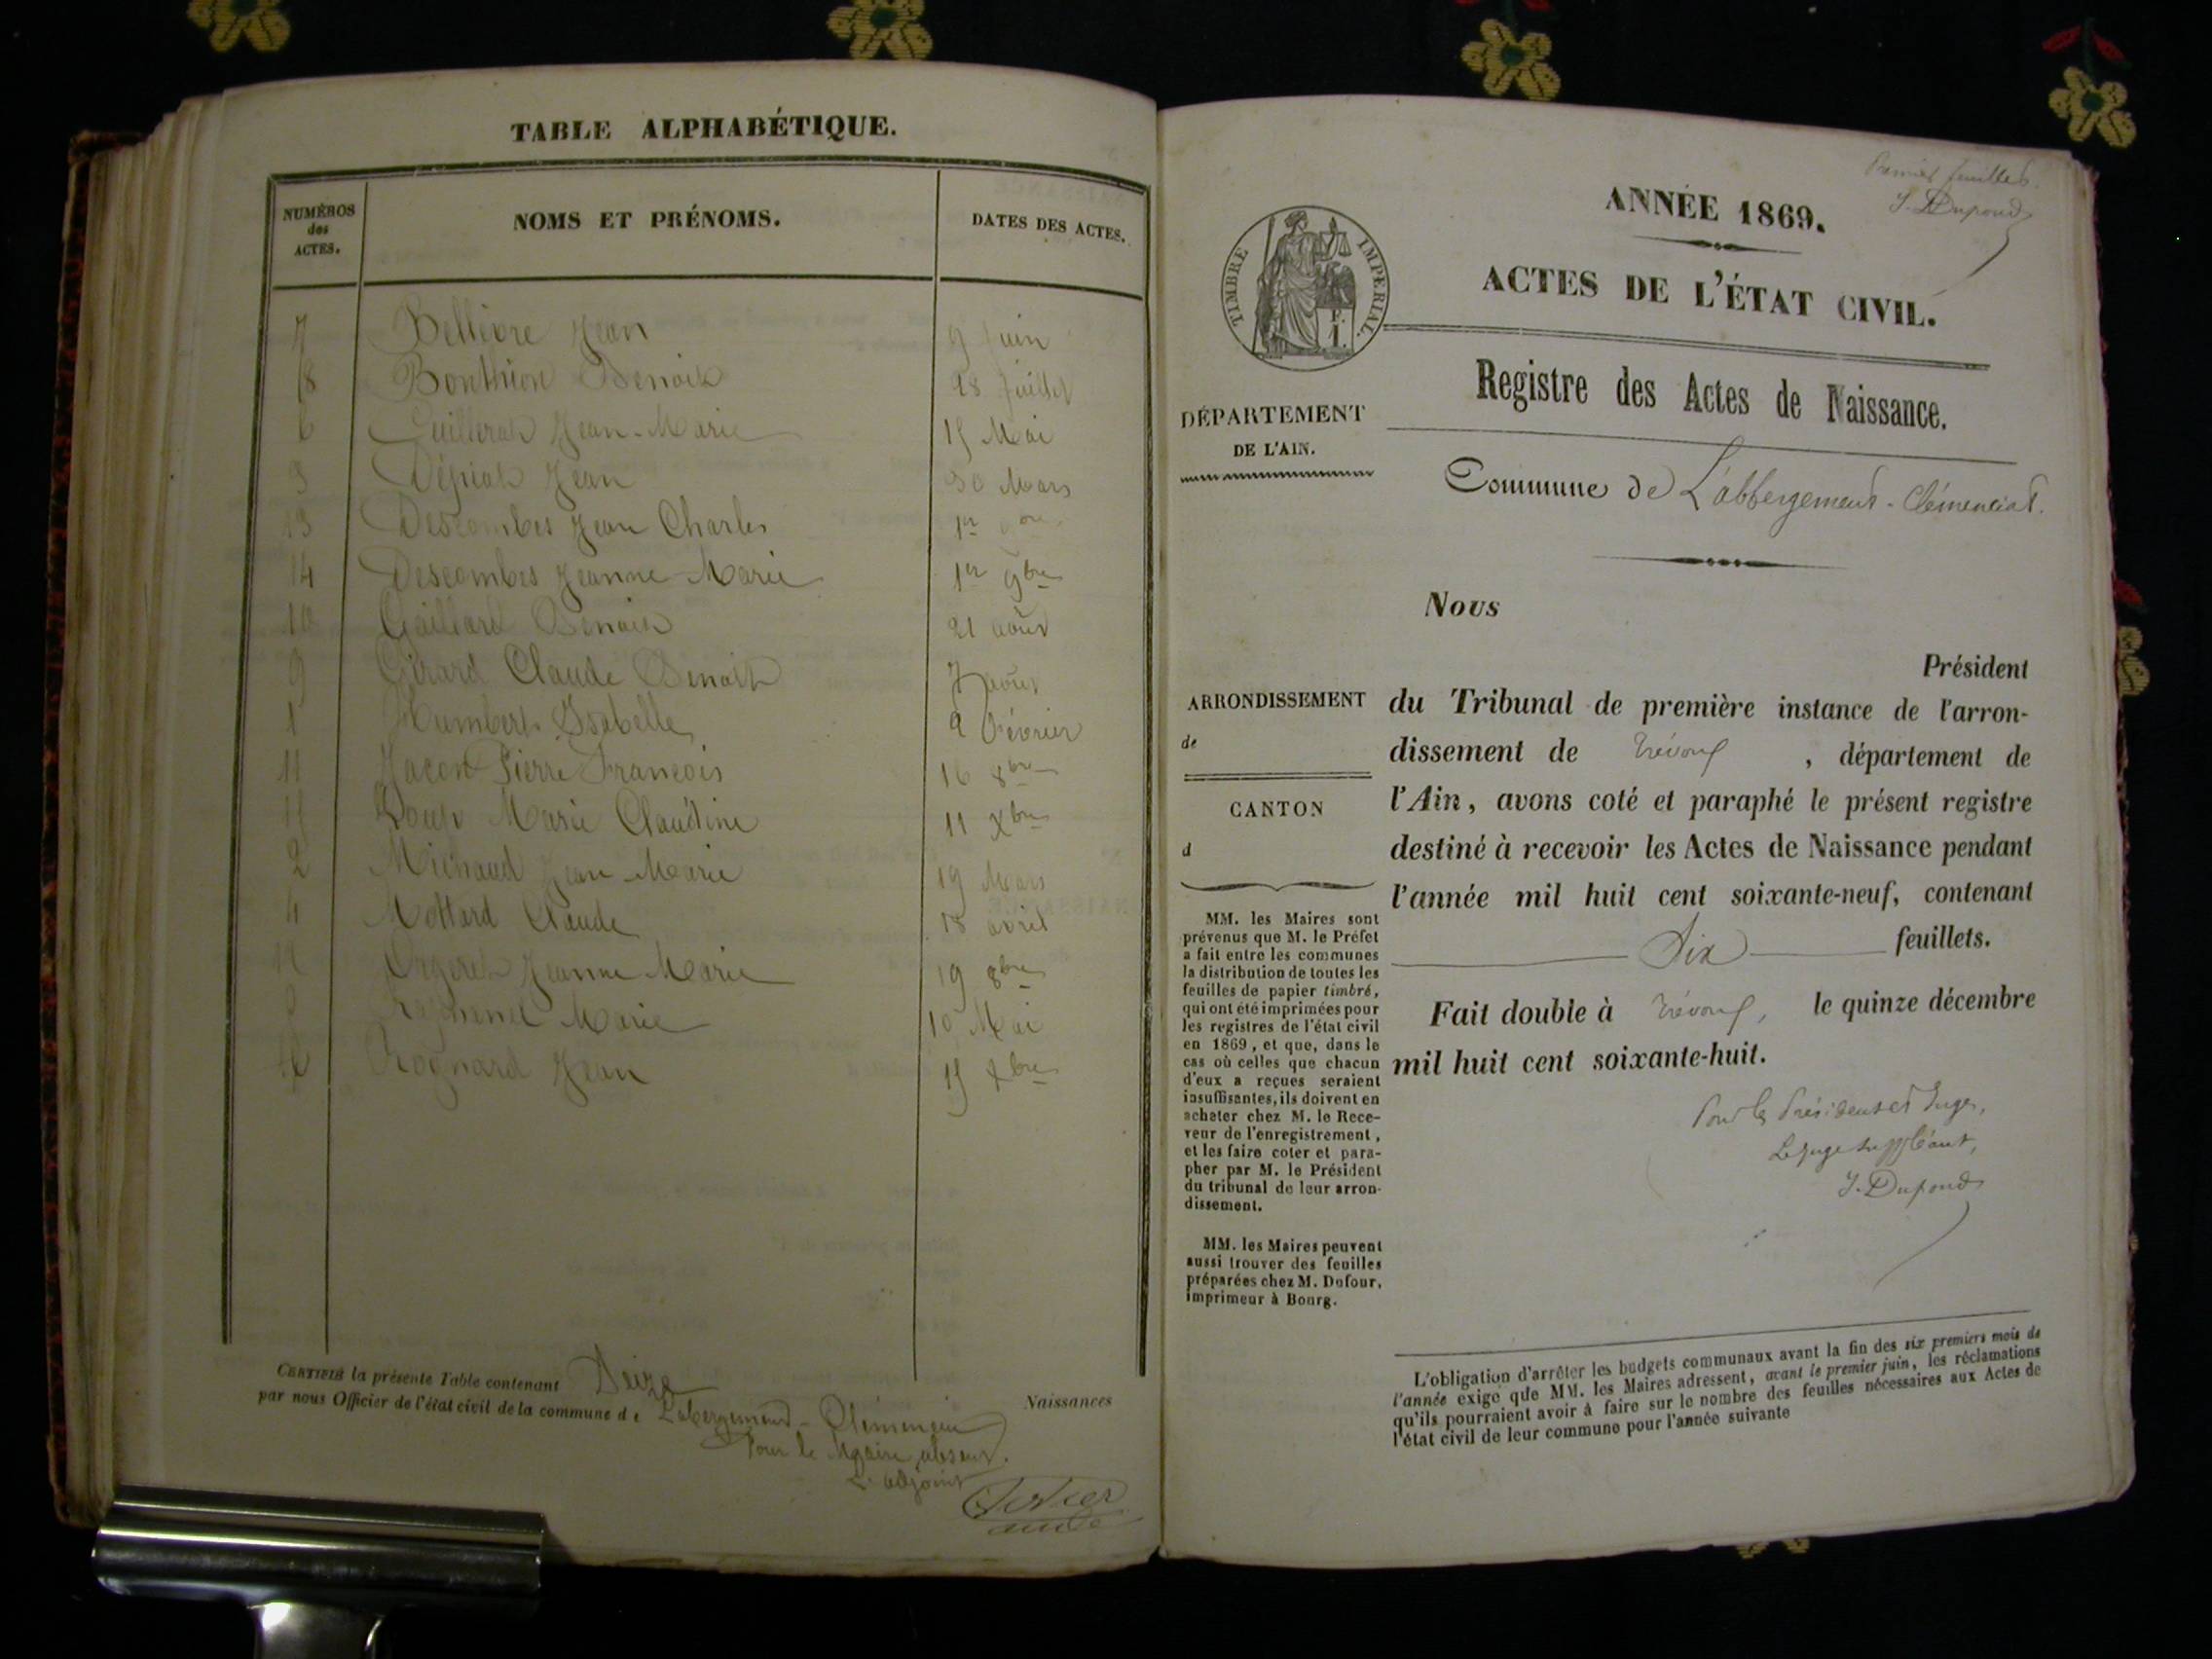 TABLE ALPHABÉTIQUE.
NUMÉROS des ACTES.
NOMS ET PRÉNOMS.
DATES DES ACTES.
7 Bellièvre Jean 9 Juin
8 Bonthion Benoit 28 Juillet
6 Guillerah Jean-Marie 15 Mai
3 Jean 30 Mars
13 Descombes Jean Charles 1er
14 Descombes Jeanne Marie 1er 9bre
10 Gaillard Benoit 21 août
9 Girard Claude Benoit 7 août
1 Humbert Isabelle 2 Février
11 Jacon Pierre François 16 8bre
15 Loup Marie Claudine 11 Xbre
2 Michaud Jean-Marie 19 Mars
4 Mottard Claude 18 avril
12 Orgeret Jeanne Marie 19 8bre
Marie 10 Mai
Rognard Jean 15 Xbre
CERTIFIÉ la présente Table contenant Seize Naissances
par nous Officier de l'état civil de la commune de Labergement-Clémenciat
Pour le Maire absent.
L'adjoint
ANNÉE 1869.
Premier feuillet.
J. Dupond
TIMBRE IMPERIAL.
ACTES DE L'ÉTAT CIVIL.
Registre des Actes de Naissance.
DÉPARTEMENT
DE L'AIN.
Commune de L'abbergement-Clémenciat.
Nous
Président
ARRONDISSEMENT
de
CANTON
d
du Tribunal de première instance de l'arron-
dissement de Trévoux, département de
l'Ain, avons coté et paraphé le présent registre
destiné à recevoir les Actes de Naissance pendant
l'année mil huit cent soixante-neuf, contenant
Six feuillets.
Fait double à Trévoux, le quinze décembre
mil huit cent soixante-huit.
Pour le Président et Juges,
Le Juge suppléant,
J. Dupond
MM. les Maires sont
prévenus que M. le Préfet
a fait entre les communes
la distribution de toutes les
feuilles de papier timbré,
qui ont été imprimées pour
les registres de l'état civil
en 1869, et que, dans le
cas où celles que chacun
d'eux a reçues seraient
insuffisantes, ils doivent en
acheter chez M. le Rece-
veur de l'enregistrement,
et les faire coter et para-
pher par M. le Président
du tribunal de leur arron-
dissement.
MM. les Maires peuvent
aussi trouver des feuilles
préparées chez M. Dufour,
imprimeur à Bourg.
L'obligation d'arrêter les budgets communaux avant la fin des six premiers mois de
l'année exige que MM. les Maires adressent, avant le premier juin, les réclamations
qu'ils pourraient avoir à faire sur le nombre des feuilles nécessaires aux Actes de
l'état civil de leur commune pour l'année suivante